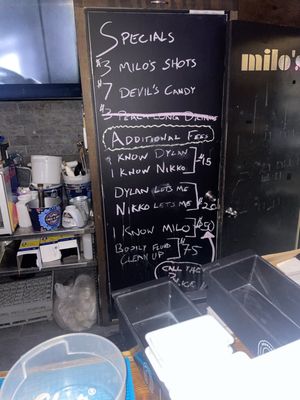 SPECIALS
$3 MILO'S SHOTS
$7 DEVIL'S CANDY
$3 PEACH LONG DRINKS
ADDITIONAL FEES
I KNOW DYLAN
I KNOW NIKKO
$5
DYLAN LETS ME
NIKKO LETS ME
$20
I KNOW MILO
$50
BODILY FLUID
CLEAN UP
$75
CALL THE
milo's